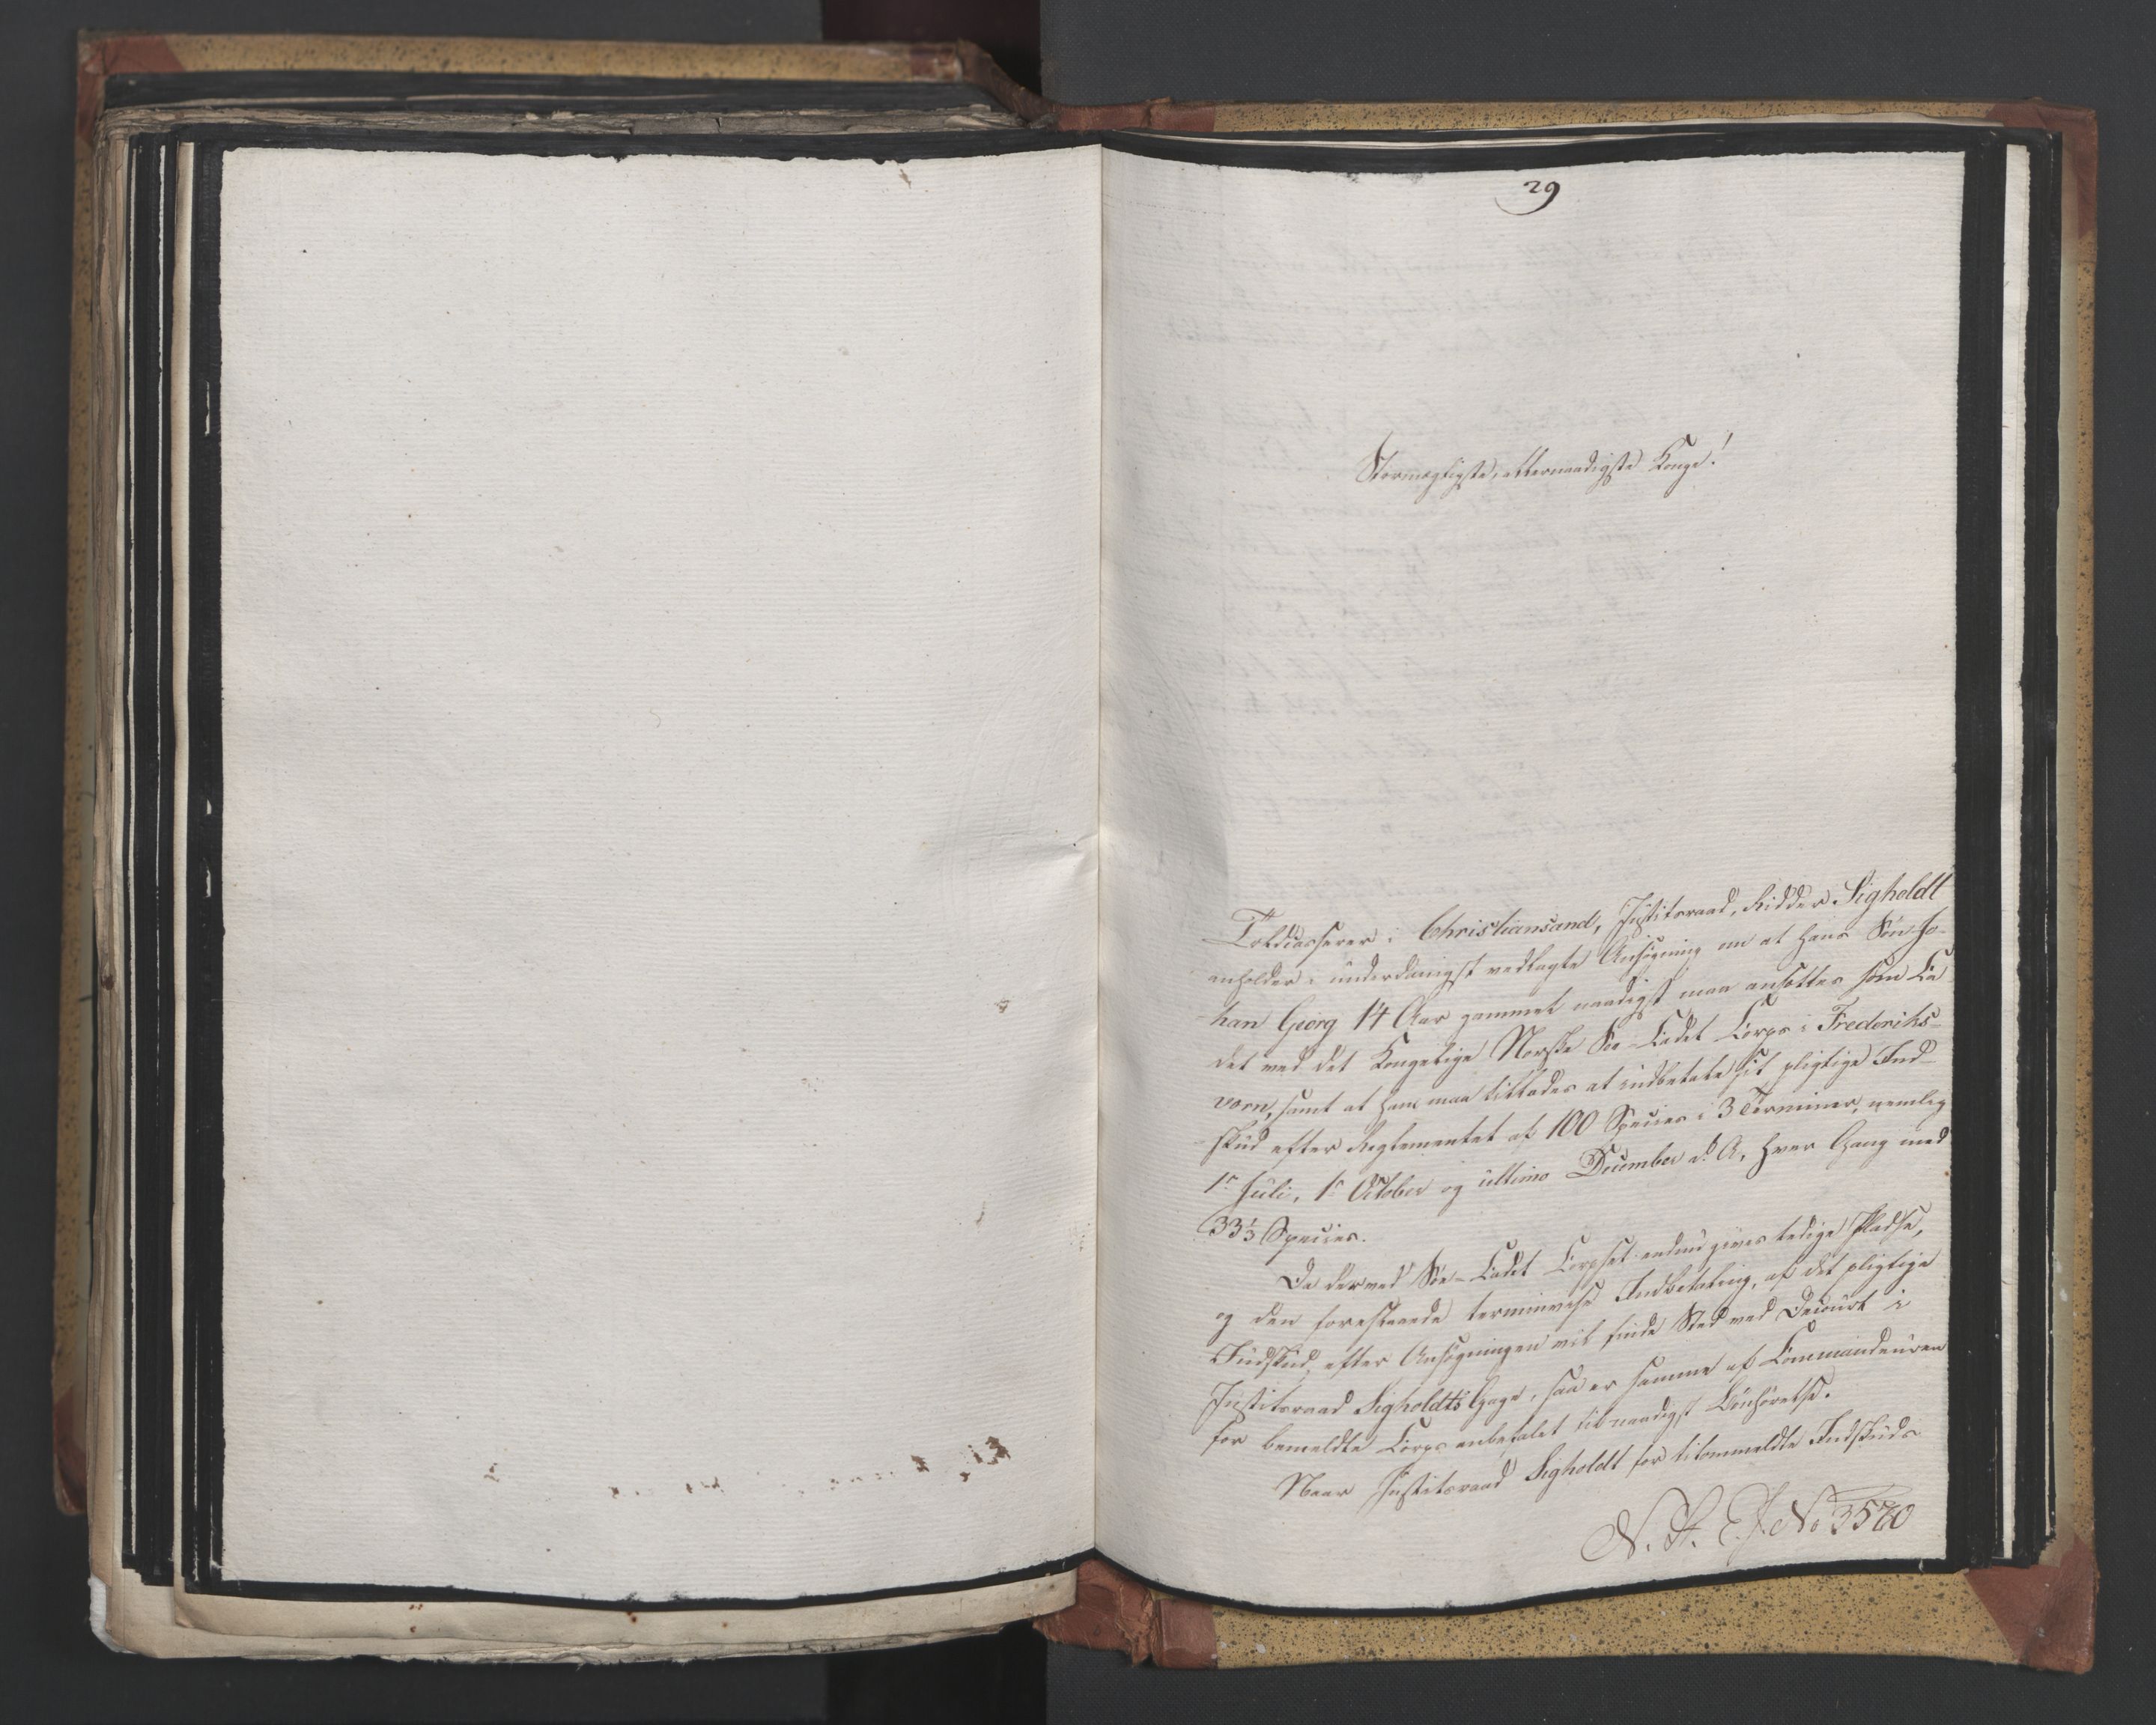 29
Stormægtigste, allernaadigste Konge!
Toldcasserer i Christiansand, Justitsraad, Ridder Sigholdt
anholder i underdanigst vedlagte Ansøgning om at hans Søn Jo-
han Georg 14 Aar gammel naadigst maa ansættes som Ca-
det ved det Kongelige Norske Søe-Cadet Corps i Frederiks-
vorn, samt at han maa tillades at indbetale sit pligtige Ind-
skud efter Reglementet af 100 Species i 3 Terminer, nemlig
1ste Juli, 1ste October og ultimo December d. A. hver Gang med
33⅓ Species.
Da der ved Søe-Cadet Corpset endnu gives ledige Pladse,
og den forestaaede terminvise Indbetaling, af det pligtige
Indskud, efter Ansøgningen vil finde Sted ved Decourt i
Justitsraad Sigholdts Gage, saa er samme af Commandeuren
for bemeldte Corps anbefalet til naadigst Bønhørelse.
Naar Justitsraad Sigholdt for bemeldte Indskuds
N. St. E. J. No 3570